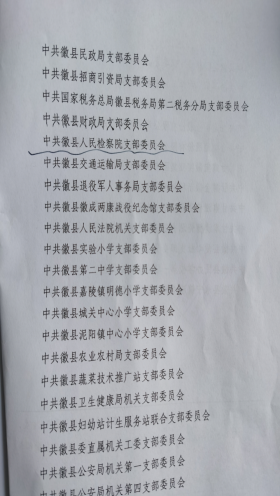 中共徽县民政局支部委员会
中共徽县招商引资局支部委员会
中共国家税务总局徽县税务局第二税务分局支部委员会
中共徽县财政局支部委员会
中共徽县人民检察院支部委员会
中共徽县交通运输局支部委员会
中共徽县退役军人事务局支部委员会
中共徽县徽成两康战役纪念馆支部委员会
中共徽县人民法院机关支部委员会
中共徽县实验小学支部委员会
中共徽县第二中学支部委员会
中共徽县嘉陵镇明德小学支部委员会
中共徽县城关中心小学支部委员会
中共徽县泥阳镇中心小学支部委员会
中共徽县农业农村局支部委员会
中共徽县蔬菜技术推广站支部委员会
中共徽县卫生健康局机关支部委员会
中共徽县妇幼站计生服务站联合支部委员会
中共徽县委直属机关工委支部委员会
中共徽县公安局机关第一支部委员会
中共徽县公安局机关第四支部委员会